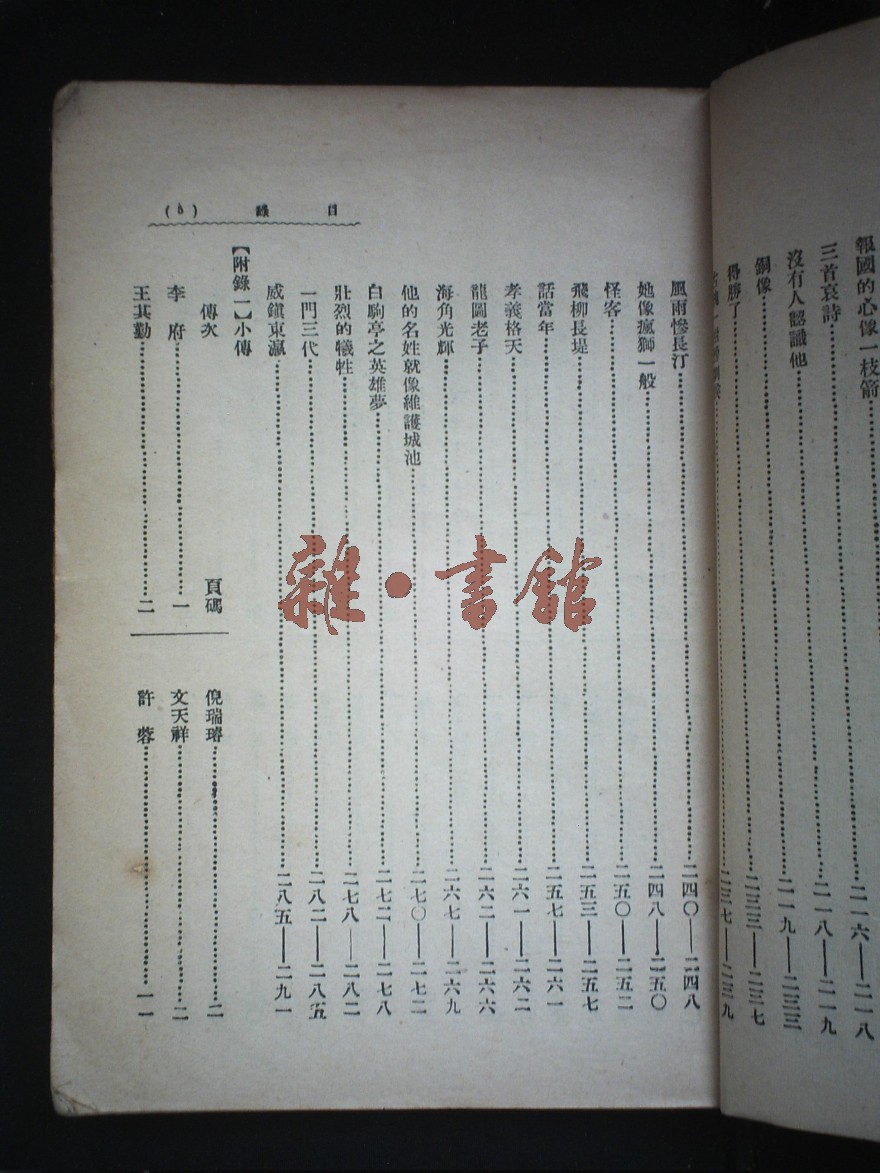 報國的心像一枝箭……二一六——二一八
三首哀詩……二一八——二一九
沒有人認識他……二一九——二三三
銅像……二三三——二三七
得勝了……二三七——二三九
目錄 (5)
風雨慘長汀……二四〇——二四八
她像瘋獅一般……二四八——二五〇
怪客……二五〇——二五二
飛柳長堤……二五三——二五七
話當年……二五七——二六一
孝義格天……二六一——二六二
龍圖老子……二六二——二六六
海角光輝……二六七——二六九
他的名姓就像維護城池……二七〇——二七二
白駒亭之英雄夢……二七二——二七八
壯烈的犧牲……二七八——二八二
一門三代……二八二——二八五
威鎮東瀛……二八五——二九一
【附錄一】小傳
傳次 頁碼
李府……一
王其勤……二
倪瑞璿……二
文天祥……二
許蓉……一一
雜·書館